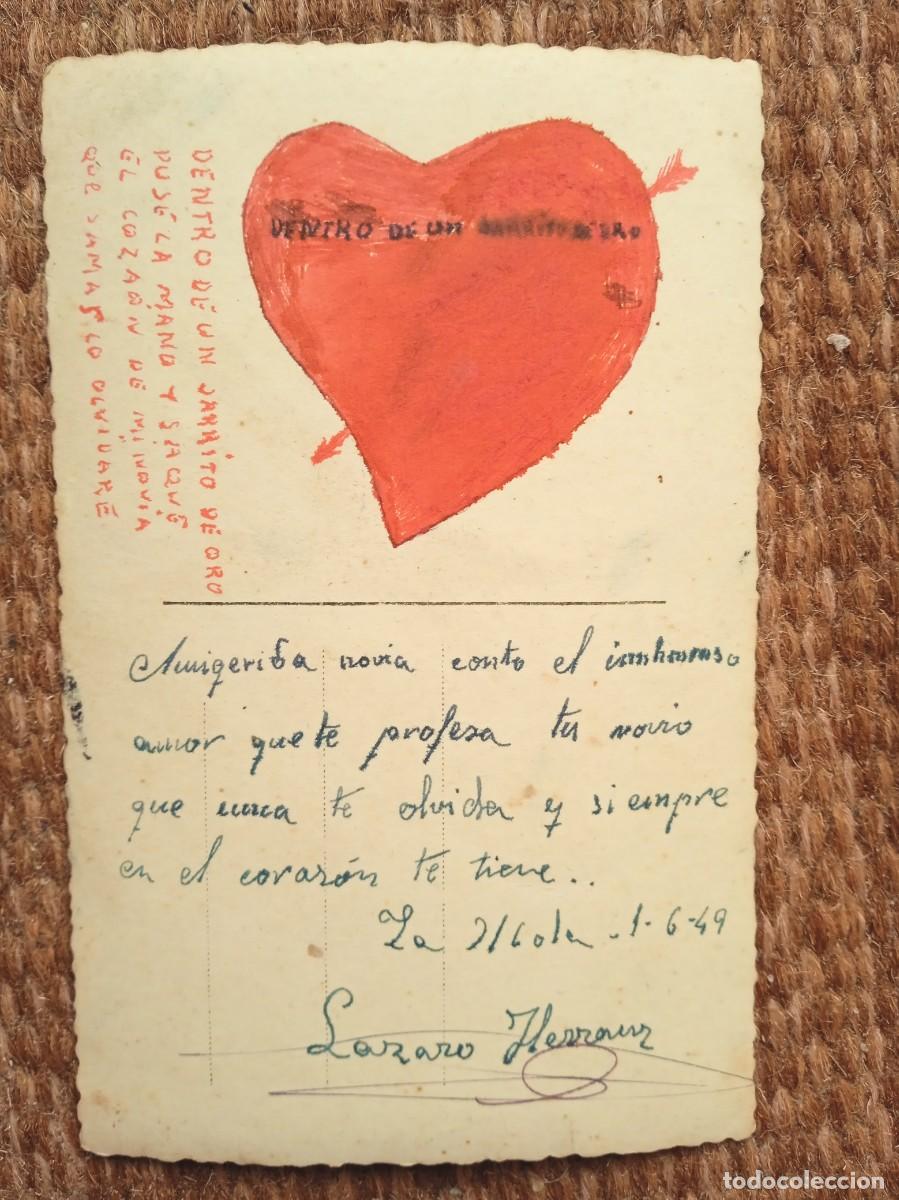 DENTRO DE UN JARRITO DE ORO
PUSE LA MANO Y SAQUÉ
EL COZAÓN DE MI NOVIA
QUE JAMAS LO OLVIDARÉ
DENTRO DE UN JARRITO DE ORO
Amigeriba novia conto el
amor que te profesa tu novio
que nuca te olvida y siempre
en el corazón te tiene..
La Mola 1-6-49
Lazaro Herranz
todocoleccion